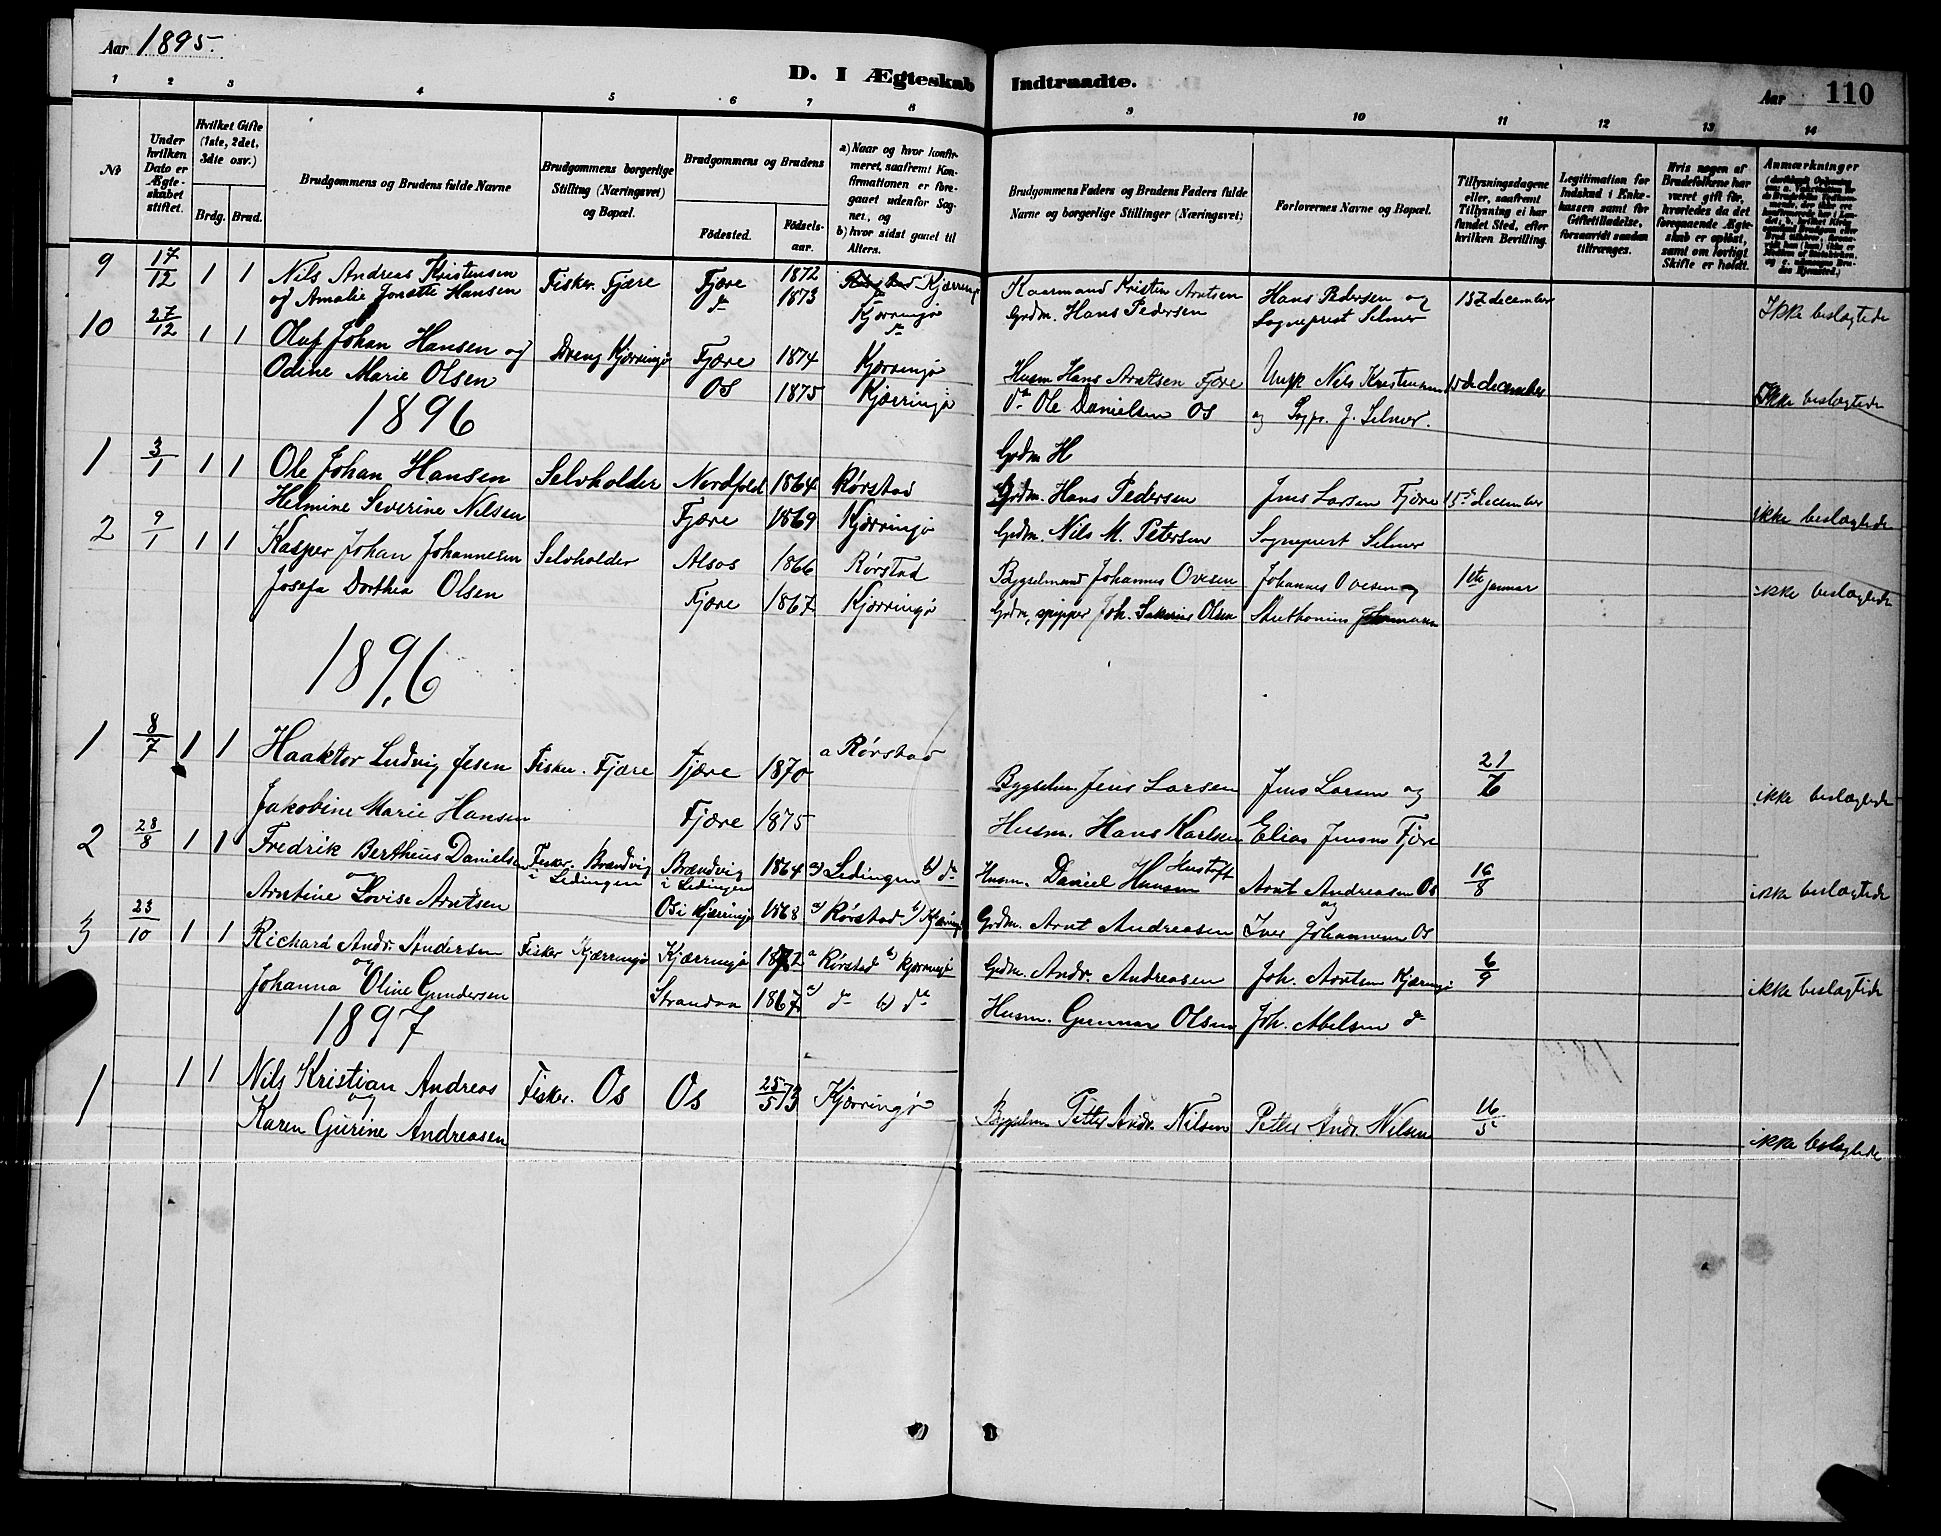 Aar 1895.
D. I Ægteskab Indtraadte.
Aar 110
1 2 3 4 5 6 7 8 9 10 11 12 13 14
No
Under hvilken Dato er Ægteskabet stiftet.
Hvilket Gifte (1ste, 2det, 3die osv.)
Brdg. Brud.
Brudgommens og Brudens fulde Navne
Brudgommens borgerlige Stilling (Næringsvei) og Bopæl.
Brudgommens og Brudens
Fødested.
Fødselsaar.
a) Naar og hvor konfirmeret, saafremt Konfirmationen er foregaaet udenfor Sognet, og
b) hvor sidst gaaet til Alters.
Brudgommens Faders og Brudens Faders fulde Navne og borgerlige Stillinger (Næringsvei)
Forlovernes Navne og Bopæl.
Tillysningsdagene eller, saafremt Tillysning ei har fundet Sted, efter hvilken Bevilling.
Legitimation for Indskud i Enkekassen samt for Giftetilladelse, forsaavidt saadan tiltrænges.
Hvis nogen af Brudefolkene har været gift før, hvorledes da det foregaaende Ægteskab er opløst, samt om lovligt Skifte er holdt.
Anmærkninger
9 17/12 1 1 Nils Andreas Kristensen Fisker. Fjære Fjære 1872 Kjærringø Kaarmand Kristen Arntsen Hans Pedersen og 15de december Ikke beslægtede
og Amalie Jonette Hansen do 1873 Kjærringø Grdm. Hans Pedersen Sogneprest Selmer
10 27/12 1 1 Oluf Johan Hansen og Dreng Kjærringø Fjære 1874 Kjærringø Husm Hans Arntsen Fjære Ungk Nils Kristensen 15de december Ikke beslægtede
Odine Marie Olsen Os 1875 Kjærringø do Ole Danielsen Os og Sogpr. J. Selmer.
1896
Grdm H
1 3/1 1 1 Ole Johan Hansen Selvholder Nordfold 1864 Rørstad Grdm. Hans Pedersen Jens Larsen Fjære 15de december ikke beslægtede
Helmine Severine Nilsen Fjære 1869 Kjærringø Grdm. Nils M. Petersen Sogneprest Selmer
2 9/1 1 1 Kasper Johan Johannesen Selvholder Alsos 1866 Rørstad Bygselmand Johannes Ovesen Johannes Ovesen og 1ste januar ikke beslægtede
Josefa Dorthea Olsen Fjære 1867 Kjærringø Grdm, skipper Joh. Sakarias Olsen
1896
1 8/7 1 1 Haaktor Ludvig Jesen Fisker. Fjære Fjære 1870 a Rørstad Bygselm. Jens Larsen Jens Larsen og 21/6 ikke beslægtede
Jakobine Marie Hansen Fjære 1875 Husm. Hans Karlsen Elias Jensen Fjære
2 28/8 1 1 Fredrik Bertheus Danielsen Fisker. Brændvig i Lødingen Brændvig i Lødingen 1864 a) Lødingen b) do Husm. Daniel Hansen Arnt Andreasen Os 16/8 ikke beslægtede
og Arntine Lovise Arntsen Os i Kjærringø 1868 a) Rørstad b) Kjærringø Grdm. Arnt Andreasen og Iver Johannesen Os
3 23/10 1 1 Richard Andr. Andersen Fisker Kjærringø Kjærringø 1872 a Rørstad b) Kjærringø Grdm. Andr. Andreasen Joh. Arntsen Kjærringø 6/9 ikke beslægtede
og Johanna Oline Gundersen Strandaa 1867 a) do b) do Husm. Gunnar Olsen Joh. Abelsen do
1897
1 1 1 Nils Kristian Andreas Fisker. Os Os 25/5 73 Kjærringø Bygselm Petter Andr. Nilsen Petter Andr. Nilsen 16/5 ikke beslægtede
og Karen Gurine Andreasen